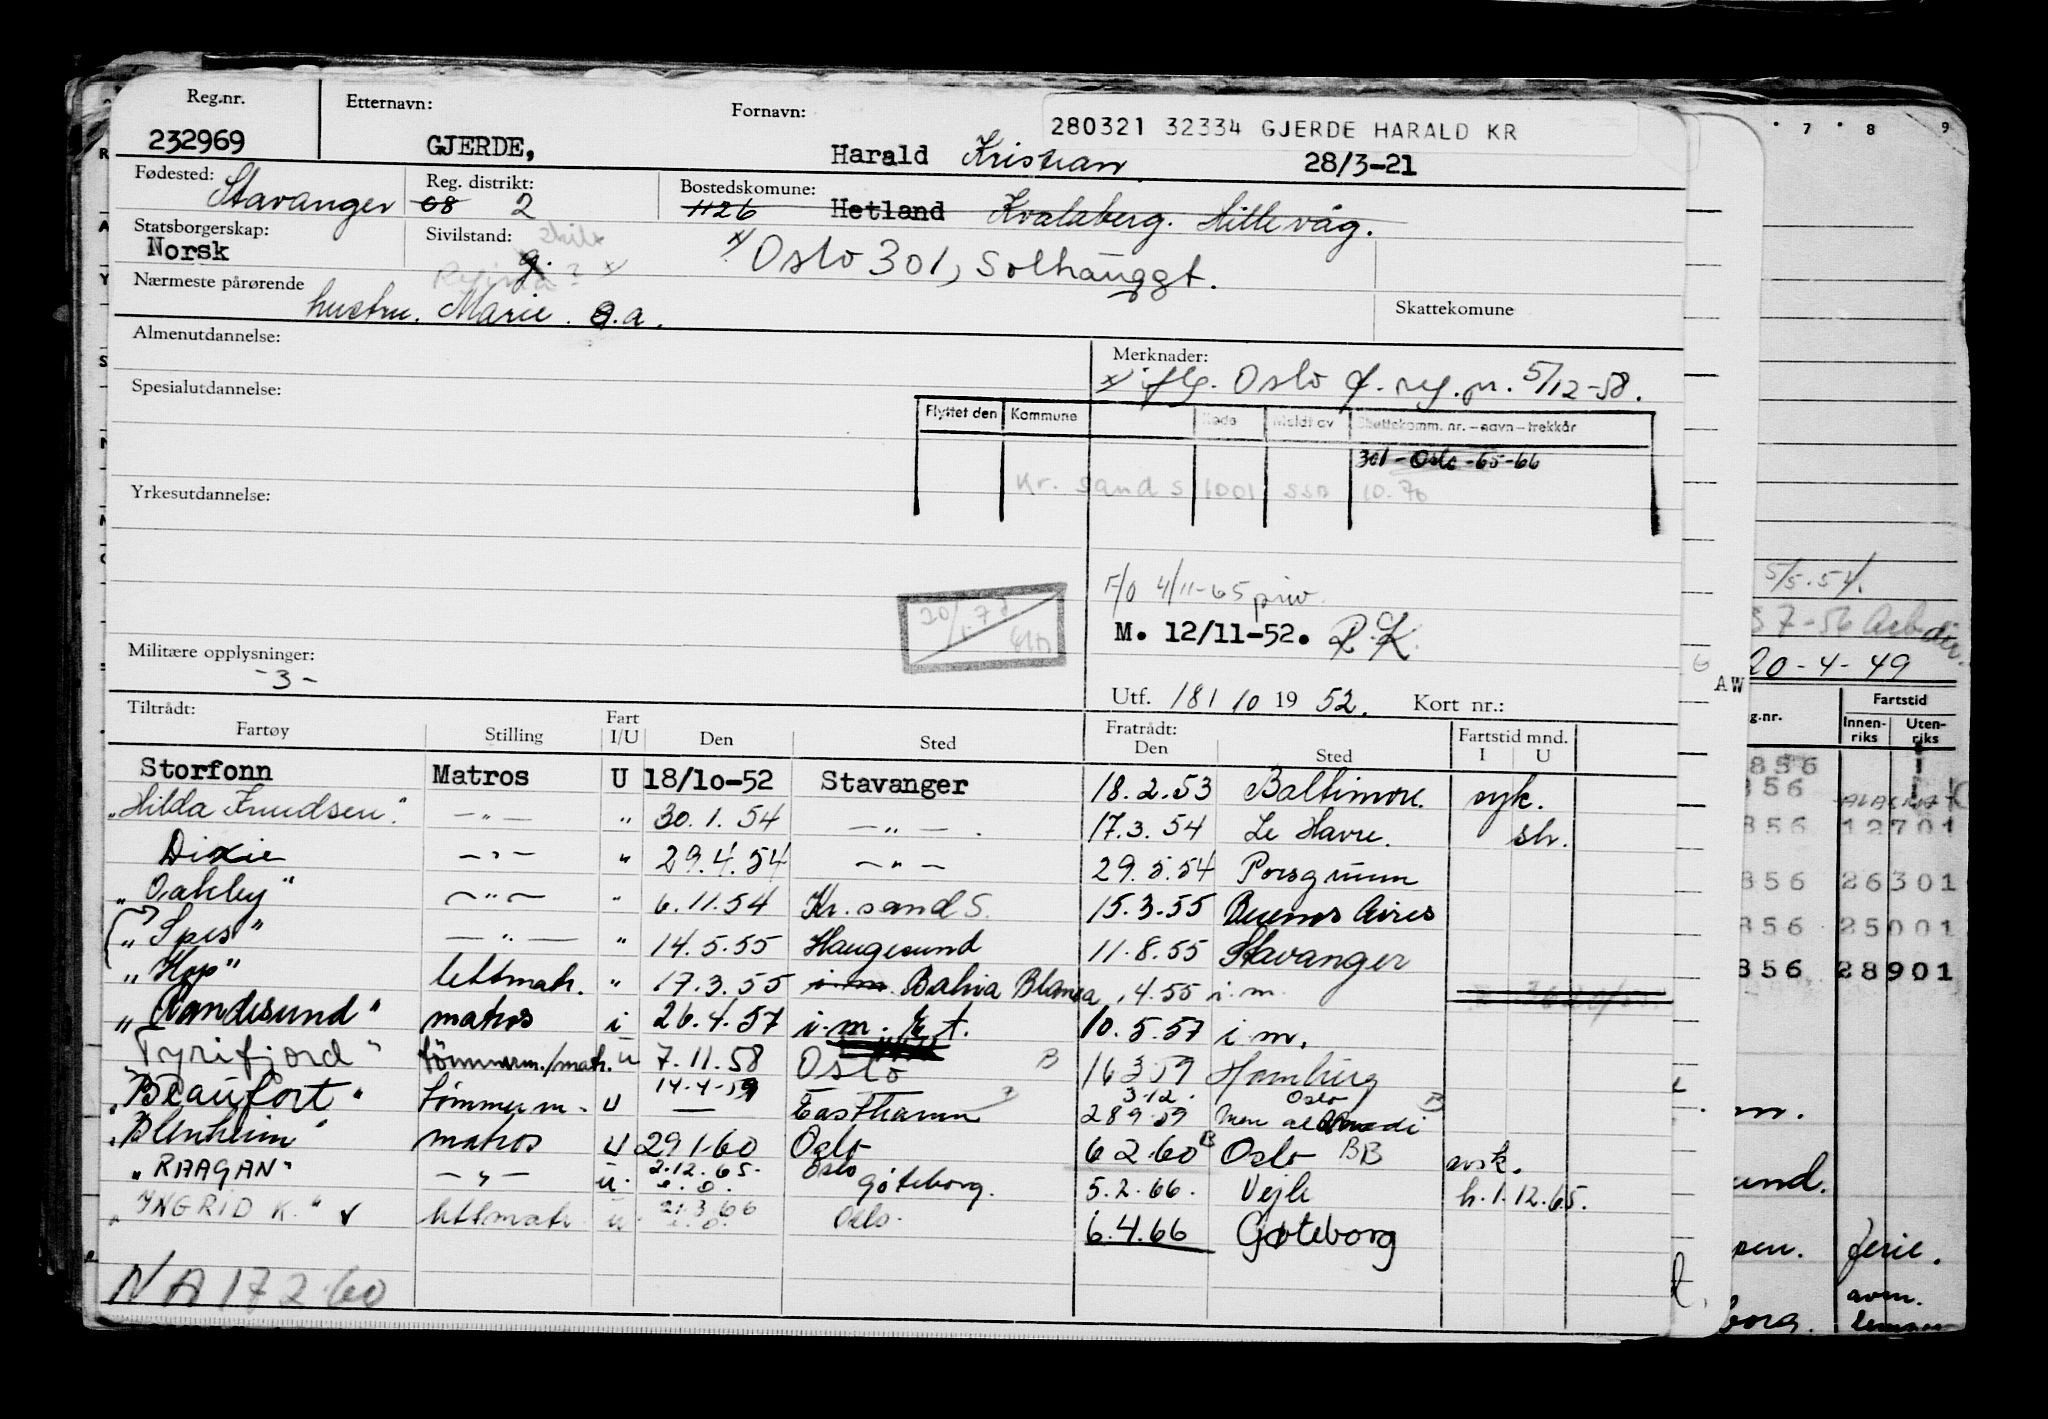 Reg.nr. Etternavn: Fornavn: 280321 32334 GJERDE HARALD KR
232969 GJERDE, Harald Kristian 28/3-21
Fødested: Reg. distrikt: Bostedskomune:
Stavanger 08 2 1126 Hetland Kvalaberg. Hillevåg.
Statsborgerskap: Sivilstand: skilt
Norsk g. x/ Oslo 301, Solhauggt.
Nærmeste pårørende Skattekomune
hustru. Marie s.a.
Almenutdannelse: Merknader:
x iflg. Oslo f.reg. pr. 5/12-58.
Spesialutdannelse:
Flyttet den Kommune Kode Meldt av Skattekomm. nr. - navn - trekkår
301 - Oslo - 65-66
Kr. sand S 1001 SSD 10.70
Yrkesutdannelse:
F/O 4/11-65 priv.
M. 12/11-52. R.K.
Militære opplysninger:
- 3 -
Utf. 18/10 1952. Kort nr.:
Tiltrådt: Fratrådt:
Fartøy Stilling Fart I/U Den Sted Den Sted Fartstid mnd. I U
Storfonn Matros U 18/10-52 Stavanger 18.2.53 Baltimore. syk.
"Hilda Knudsen". — " — " 30.1.54 — " — . 17.3.54 Le Havre. str.
Dixie — " — " 29.4.54 — " — 29.5.54 Porsgrunn
"Oakley" — " — " 6.11.54 Kr.sand S. 15.3.55 Buenos Aires
"Spes" — " — " 14.5.55 Haugesund 11.8.55 Stavanger
"Hop" lettmatr. " 17.3.55 i.m. Bahia Blanca .4.55 i.m.
"Randesund" matros i 26.4.57 i.m. Et. 10.5.57 i.m.
Tyrifjord" tømmerm./matr. u 7.11.58 Oslo B 16 3 59 Hamburg
"Beaufort" tømmerm. U 14.4.59 — Eastham 3.12. Oslo B
28 9 59
"Blenheim" matros U 29 1-60 Oslo 6 2.60 B Oslo BB avsk.
"RAAGAN" — " — u. 2.12.65. Oslo Göteborg. 5.2.66. Vejle h.1.12.65.
"INGRID K." v lettmatr. u. 21.3.66 Oslo. 6.4.66 Gøteborg
NA 17 2 60
7 8 9
5/5.54.
20-4-49
AW
g.nr. Fartstid
Innen-riks Uten-riks
856
856
856 12701
856 26301
856 25001
856 28901
ferie.
avm.